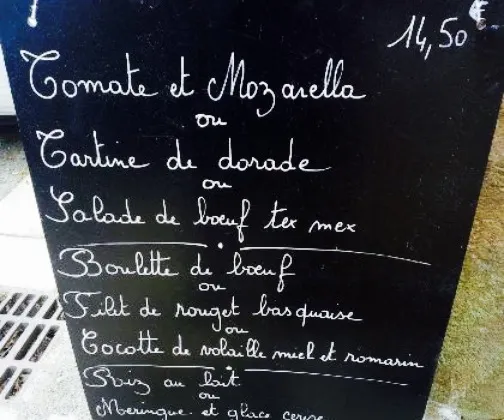 14,50 €
Tomate et Mozarella
ou
Tartine de dorade
ou
Salade de bœuf tex mex
Boulette de bœuf
ou
Filet de rouget basquaise
ou
Cocotte de volaille miel et romarin
Riz au lait
ou
Meringue et glace cerise